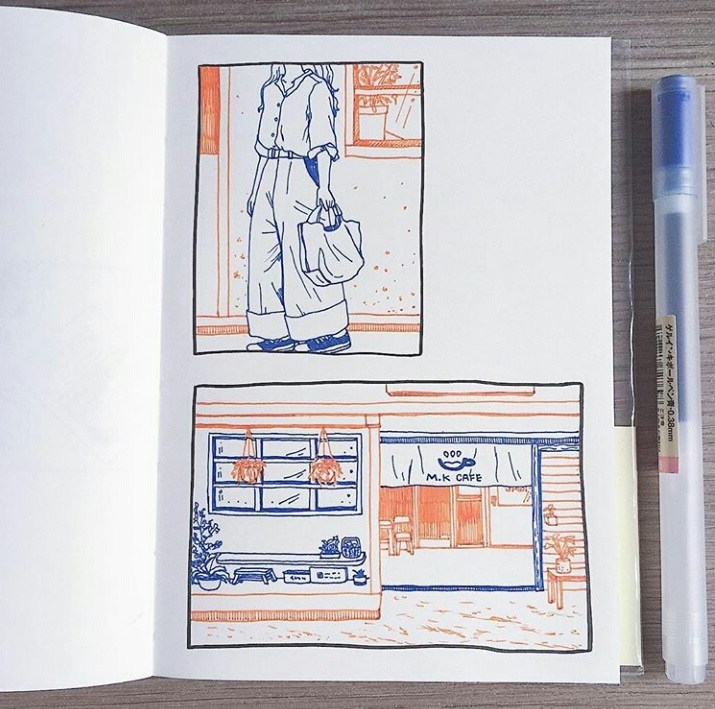 M.K CAFE
ゲルインキボールペン青・0.38mm